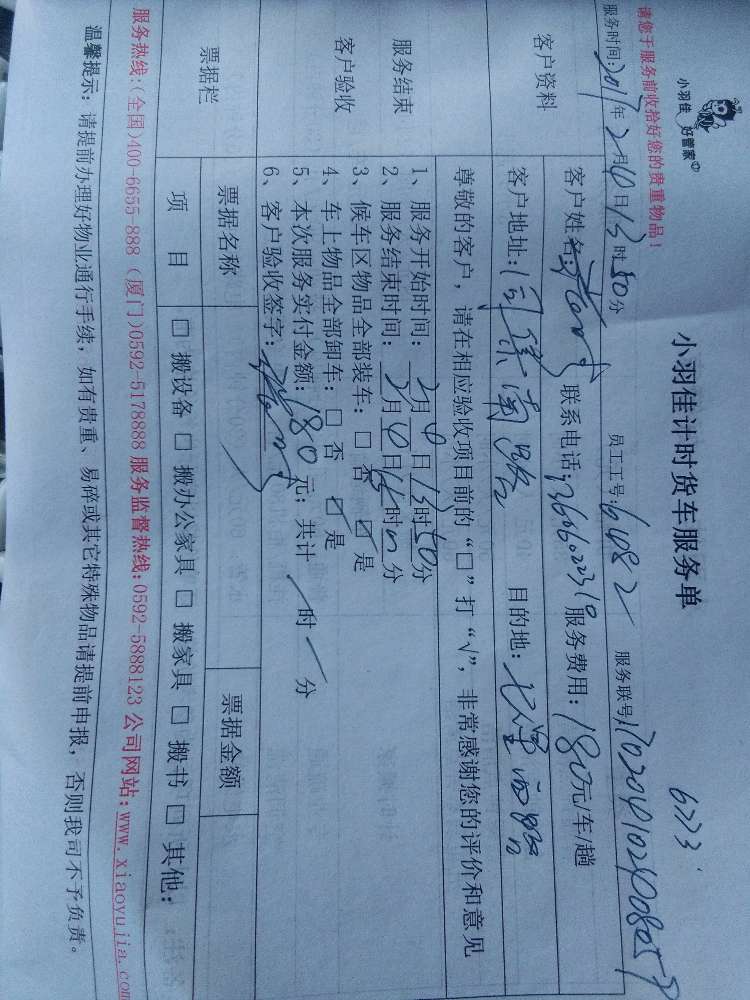 小羽佳 好管家
小羽佳计时货车服务单
6223
请您于服务前收拾好您的贵重物品！
服务时间：2017年2月4日13时50分 员工工号：6482 服务联号：
客户资料
客户姓名： 联系电话：13606022319 服务费用：180元/车/趟
客户地址： 目的地：
尊敬的客户，请在相应验收项目前的“□”打“√”，非常感谢您的评价和意见
服务结束
客户验收
1、服务开始时间：2月4日13时50分
2、服务结束时间：2月4日 时 分
3、候车区物品全部装车：□ 否 ☑ 是
4、车上物品全部卸车：□ 否 ☑ 是
5、本次服务实付金额：180元；共计 时 分
6、客户验收签字：
票据栏
票据名称 票据金额
项 目 □ 搬设备 □ 搬办公家具 □ 搬家具 □ 搬书 □ 其他：
服务热线：(全国)400-6655-888 (厦门)0592-5178888 服务监督热线：0592-5888123 公司网站：www.xiaoyujia.com
温馨提示：请提前办理好物业通行手续，如有贵重、易碎或其它特殊物品请提前申报，否则我司不予负责。